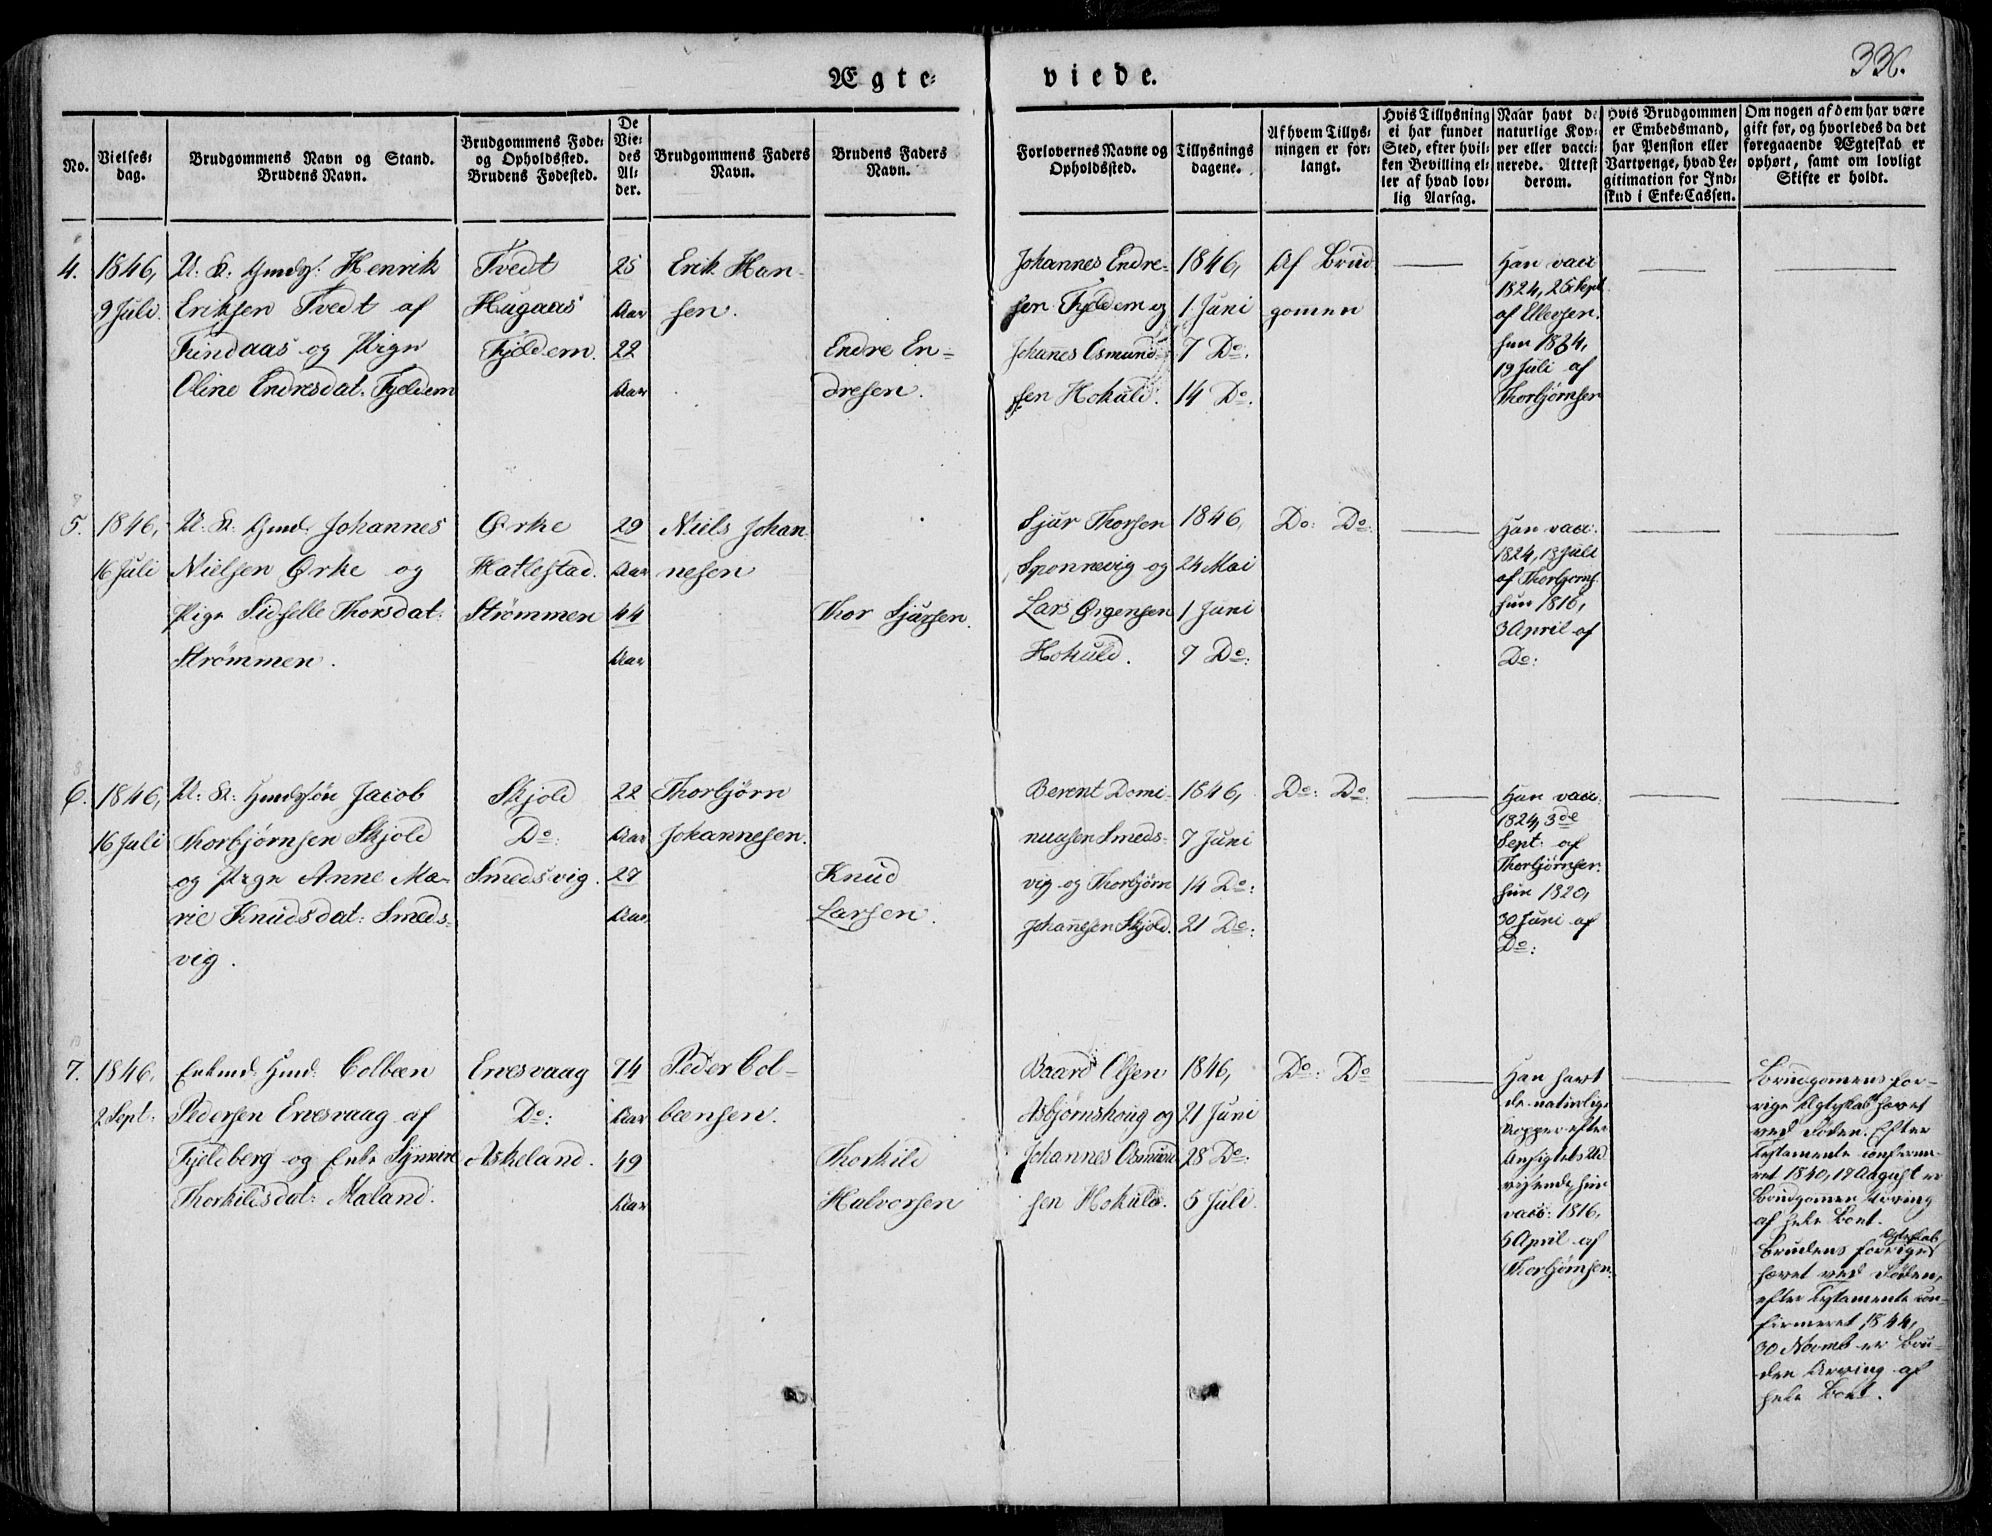 Ægte-
viede.
336.
No.
Vielses-
dag.
Brudgommens Navn og Stand.
Brudens Navn.
Brudgommens Føde-
og Opholdssted.
Brudens Fødested.
De
Vie-
des
Al-
der.
Brudgommens Faders
Navn.
Brudens Faders
Navn.
Forlovernes Navne og
Opholdssted.
Tillysnings
dagene.
Af hvem Tillys-
ningen er for-
langt.
Hvis Tillysning
ei har fundet
Sted, efter hvil-
ken Bevilling el-
ler af hvad lov-
lig Aarsag.
Naar havt de
naturlige Kop-
per eller vacci-
nerede. Attest
derom.
Hvis Brudgommen
er Embedsmand,
har Pension eller
Vartpenge, hvad Le-
gitimation for Ind-
skud i Enke-Cassen.
Om nogen af dem har være
gift før, og hvorledes da det
foregaaende Ægteskab er
ophørt, samt om lovligt
Skifte er holdt.
4.
1846,
9 Juli.
U: K: Gmds: Henrik
Eriksen Tvedt af
Findaas og Pige
Oline Endresdat. Fjeldem
Tvedt
Hugaas
Fjeldem.
25
Aar
22
Aar
Erik Han-
sen.
Endre En-
dresen.
Johannes Endre-
sen Fjeldem og
Johanes Osmund-
sen Hokuld.
1846,
1 Juni
7 Do.
14 Do.
Af Brud
gomen
Han vacc
1824, 25 Sept
af Ellevsen.
hun 1824,
19 Juli af
Thorbjørnsen
5.
1846,
16 Juli
U: K: Gmd. Johannes
Nielsen Ørke og
Pige Sidselle Thorsdat:
Strømmen.
Ørke
Hatlestad.
Strømmen
29
Aar
44
Aar
Niels Johan
nesen
Thor Sjursen.
Sjur Thorsen
Sponnevig og
Lars Ørgensen
Hokuld.
1846,
24 Mai
1 Juni
7 Do:
Do: Do:
Han vacc:
1824, 13 Juli
af Thorbjørns.
hun 1816,
3 April af
Do:
6.
1846,
16 Juli
U: K: Gmdssøn Jacob
Thorbjørnsen Skjold
og Pige Anne Ma-
rie Knudsdat: Smeds-
vig.
Skjold
Do:
Smedsvig.
22
Aar
27
Aar
Thorbjørn
Johannesen.
Knud
Larsen.
Berent Domi-
nussen Smeds-
vig og Thorbjørn
Johanesen Skjold.
1846,
7 Juni
14 Do:
21 Do:
Do: Do:
Han vacc:
1824, 3de
Sept: af
Thorbjørnsen.
hun 1820,
30 Juni af
Do:
7.
1846.
2 Sept:
Enkmd: Gmd: Colbæn
Pedersen Ervesvaag af
Fjeldberg og Enke Synnive
Thorkildsdat: Maland.
Ervesvaag
Do:
Askeland.
74
Aar
49
Aar
Peder Col-
bænsen.
Thorkild
Halvorsen
Baard Olsen
Asbjørnshoug og
Johannes Osmund
sen Hokuld.
1846,
21 Juni
28 Do:
5 Juli.
Do: Do
Han havt
de naturlige
Kopper efter
Ansigtets Ud
visende, hun
vacc: 1816,
5 April af
Thorbjørnsen.
Brudgomens for-
rige Ægteskab hævet
ved Døden. Efter
Testamente confirme-
ret 1840, 17 August er
Brudgomen Arving
af hele Boet.
Brudens forriges Ægteskab
hævet ved Døden,
efter Testamente con-
firmeret 1844,
30 Novmb er Bru-
den Arving af
hele Boet.